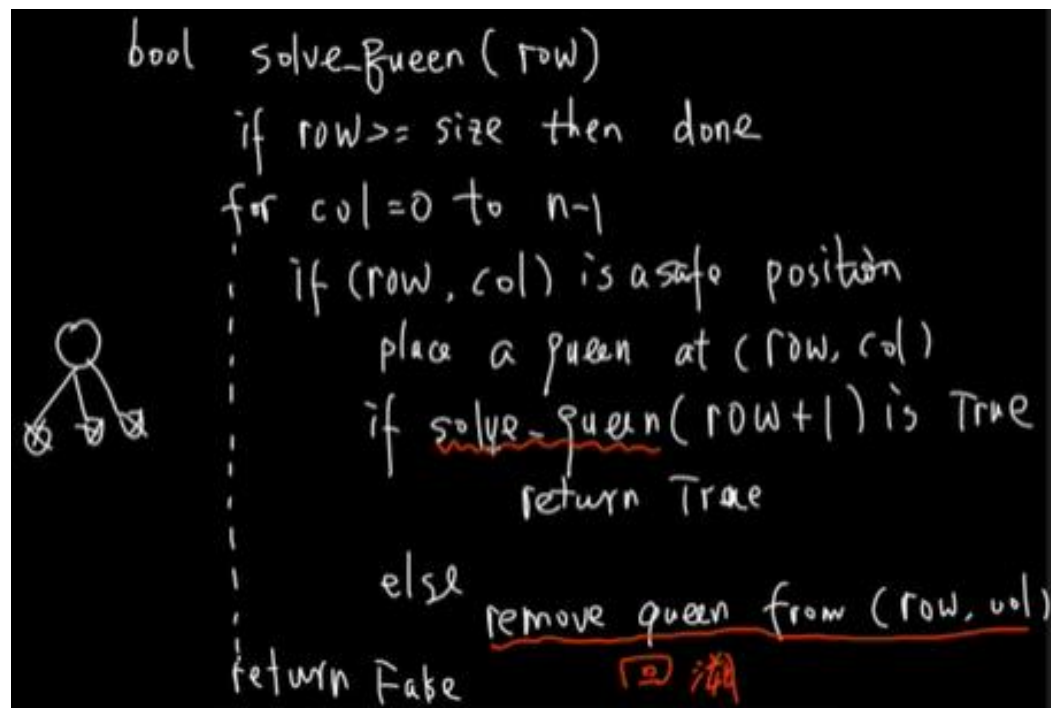 bool solve_queen (row)
if row>= size then done
for col=0 to n-1
if (row, col) is a safe position
place a queen at (row, col)
if solve_queen(row+1) is True
return True
else
remove queen from (row, col)
回溯
return False